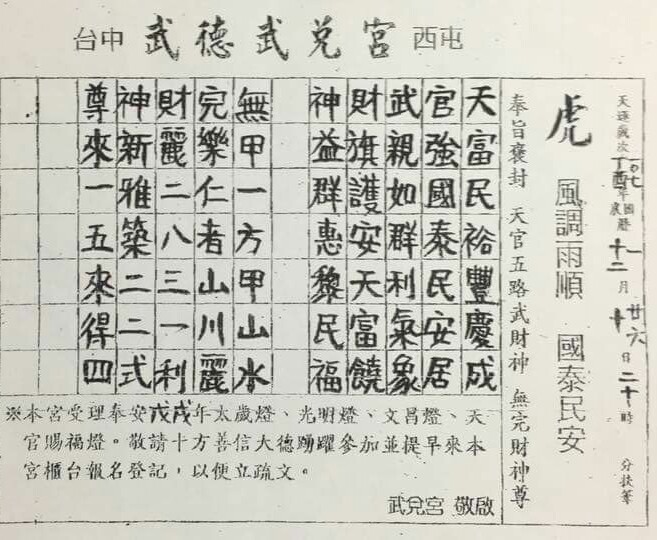 台中 武德武兌宮 西屯
天運歲次丁酉一0七年國農曆一十二月廿六十日二十時 分扶筆
虎 風調雨順 國泰民安
奉旨褒封 天官五路武財神 無完財神尊
天富民裕豐慶成
官強國泰民安居
武親如群利氣象
財旗護安天富饒
神益群惠黎民福
無甲一方甲山水
完樂仁者山川麗
財麗二八三一利
神新雅築二二式
尊來一五來得四
※本宮受理奉安戊戌年太歲燈、光明燈、文昌燈、天
官賜福燈。敬請十方善信大德踴躍參加並提早來本
宮櫃台報名登記，以便立疏文。
武兌宮 敬啟